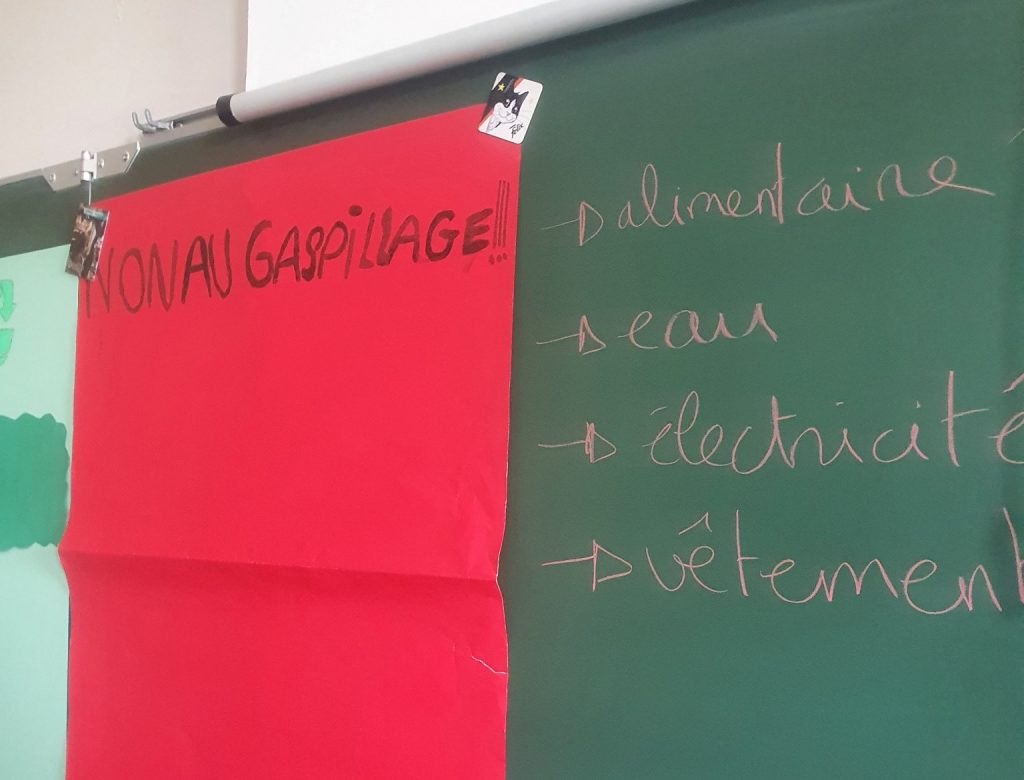 NON AU GASPILLAGE!!!
→ alimentaire
→ eau
→ électricité
→ vêtement